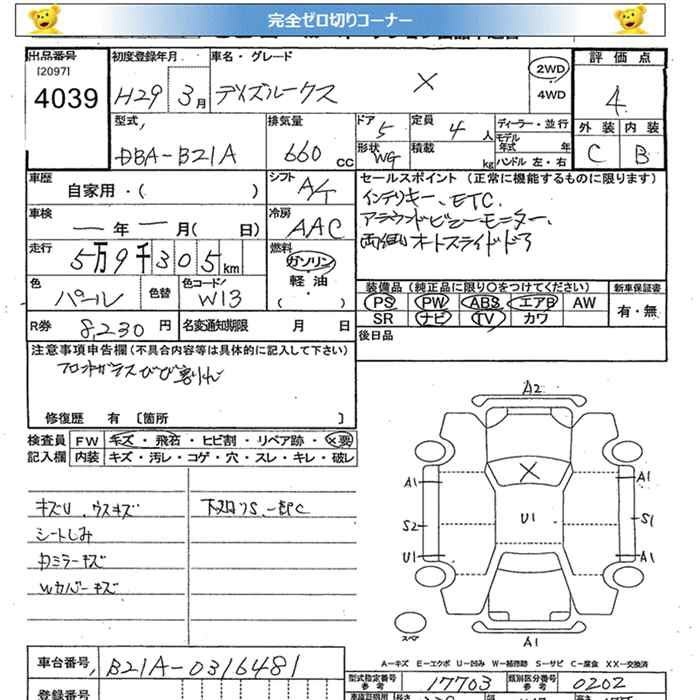 完全ゼロ切りコーナー
出品番号 初度登録年月 車名・グレード 評価点
[2097]
4039 H29 3月 デイズルークス X 2WD 4WD 4
型式 排気量 ドア 5 定員 4人 ディーラー・並行 外装 内装
DBA-B21A 660cc 形状 WG 積載 kg モデル年式 年 ハンドル 左・右 C B
車歴 自家用・( ) シフト AT セールスポイント (正常に機能するものに限ります)
車検 ー年ー月( 日) 冷房 AAC インテリキー、ETC、
アラウンドビューモニター、
走行 5万9千305km 燃料 ガソリン 軽油 ( ) 両側オートスライドドア
色 パール 色替 色コード/ W13 装備品 (純正品に限り○をつけてください) 新車保証書
PS PW ABS エアB AW 有・無
SR ナビ TV カワ
R券 8,230円 名変通知期限 月 日 後日品
注意事項申告欄 (不具合内容等は具体的に記入して下さい)
フロントガラスひび割れ
修復歴 有 〔箇所 〕
検査員 FW キズ・飛石・ヒビ割・リペア跡・X要
記入欄 内装 キズ・汚レ・コゲ・穴・スレ・キレ・破レ
キズU、ウスキズ
シートしみ
ミラーキズ
Wカバーキズ
A2
A1 X A1
S2 U1 S1
U1 A1
スペア A1
A-キズ E-エクボ U-凹み W-補修跡 S-サビ C-腐食 XX-交換済
車台番号 B21A-0316481 型式指定番号 参考 17703 類別区分番号 参考 0202
登録番号